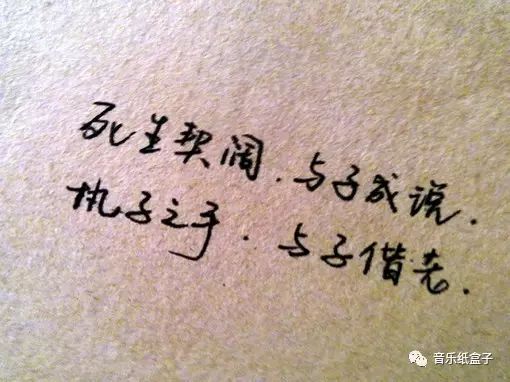 死生契阔.与子成说.
执子之手.与子偕老.
音乐纸盒子